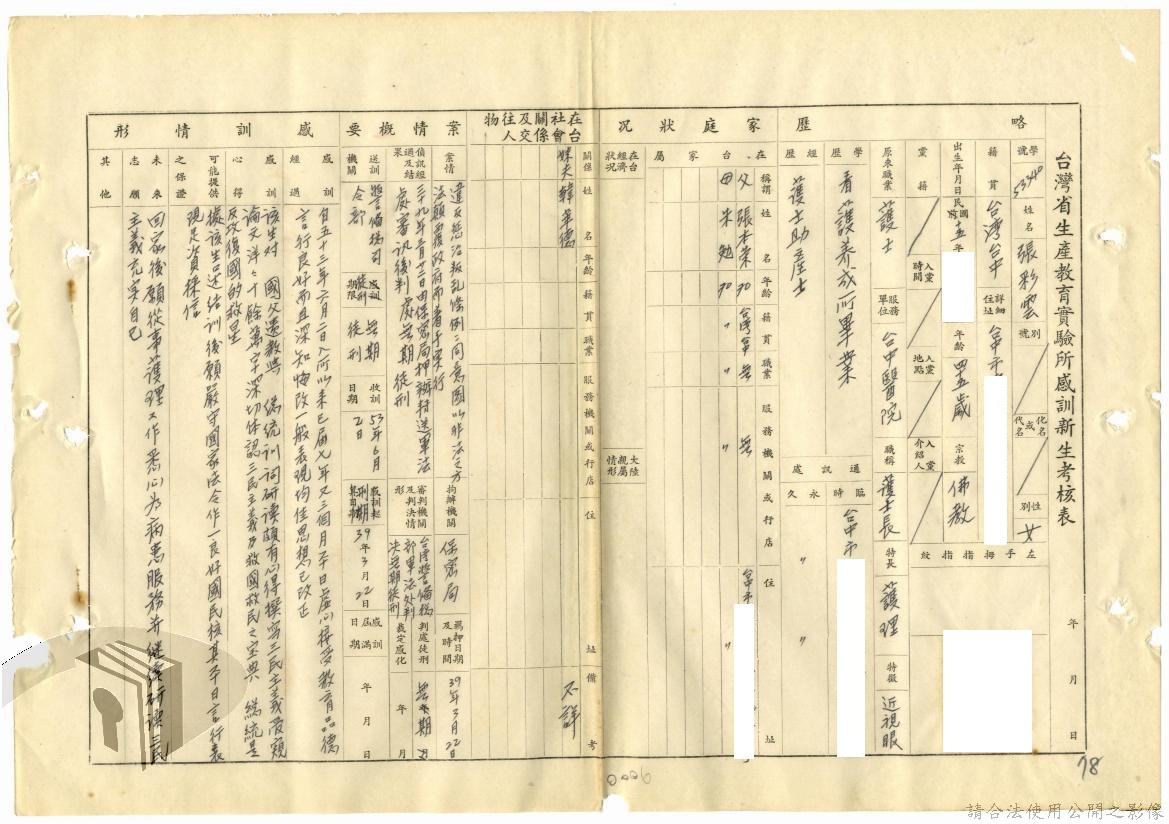 台灣省生產教育實驗所感訓新生考核表
年 月 日
略 歷
學號 5340
姓名 張彩雲
別號
化名或代名
性別 女
左手拇指指紋
籍貫 台灣台中
詳細住址 台中市
出生年月日 民國前 十五年
年齡 四五歲
宗教 佛教
黨籍
入黨時間
入黨地點
入黨介紹人
原來職業 護士
服務單位 台中醫院
職稱 護士長
特長 護理
特徵 近視眼
學歷 看護養成所畢業
經歷 護士助產士
通訊處
臨時 台中市
永久 〃 〃
家庭狀況
在台家屬
稱謂 姓名 年齡 籍貫 職業 服務機關或行店 住址
父 張本榮 70 台灣台中 無 無 台中市
母 朱勉 70 〃 〃 〃 〃
在台經濟狀況
大陸親屬情形
在台社會關係及交往人物
關係 姓名 年齡 籍貫 職業 服務機關或行店 住址 備考
妹夫 韓華德 不詳
案情概要
案情 違反懲治叛乱條例二同意圖以非法之方法顛覆政府而著手实行
拘辦機關 保密局
羈押日期及時間 39年3月22日
偵訊經過及結果 三十九年三月廿二日由保密局押辦轉送軍法處審訊後判處無期徒刑
審判機關及判決情形 台灣警備總部軍法处判决無期徒刑
判處徒刑 無期
裁定感化 年 月
送訓機關 警備總司令部
感訓徒刑期限 無期徒刑
收訓日期 53年6月2日
感訓起算刑期 39年3月22日
感訓屆滿日期 年 月 日
感訓情形
感訓經過 自五十三年六月二日入所以來已屆七年又三個月于日虛心接受教育品德言行良好而且深知悔改一般表現均佳思想已改正
感訓心得 該生对 國父遺教与 總統訓詞研讀頗有心得撰寫三民主義 論文洋々十餘萬字深切体認三民主義乃救國救民之宝典 總統是反攻復國的救星
可能提供之保證 據該生忠述結訓後願嚴守國家法令作一良好國民核其平日言行表現足資採信
未來志願 回家後願從事護理工作悉心為病患服務并繼續研讀三民主義充实自己
其他
78
0006
請合法使用公開之影像